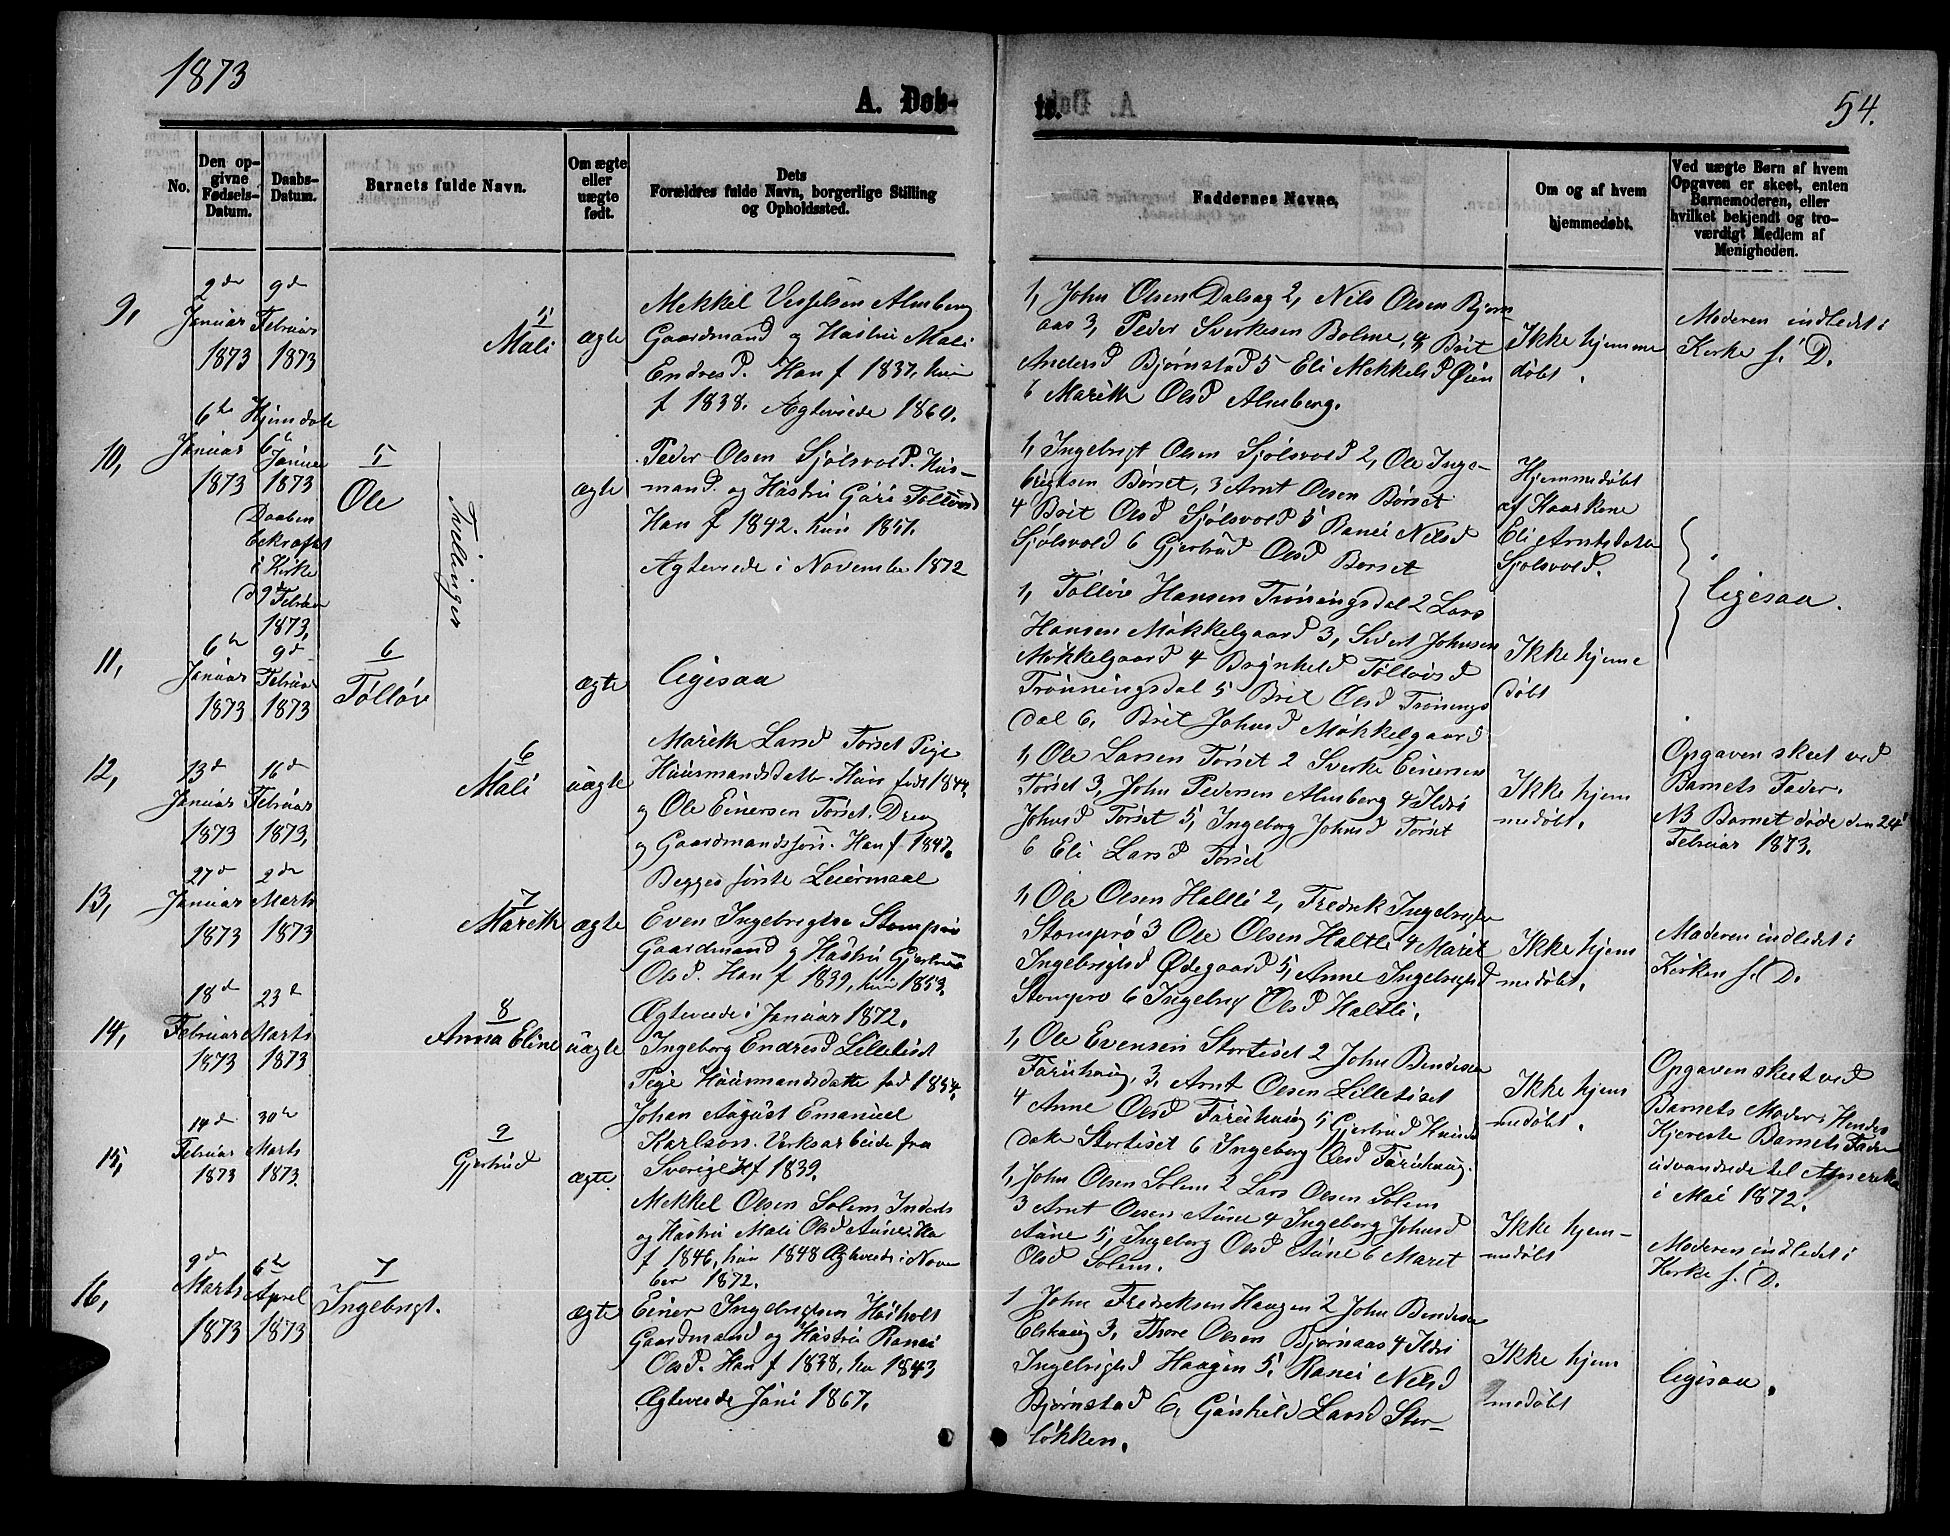 1873
A. Døb-
te.
54.
No.
Den op-
givne
Fødsels-
Datum.
Daabs-
Datum.
Barnets fulde Navn.
Om ægte
eller
uægte
født.
Dets
Forældres fulde Navn, borgerlige Stilling
og Opholdssted.
Faddernes Navne,
Om og af hvem
hjemmedøbt.
Ved uægte Børn af hvem
Opgaven er skeet, enten
Barnemoderen, eller
hvilket bekjendt og tro-
værdigt Medlem af
Menigheden.
9,
9de
Januar
1873
9de
Februar
1873
5
Mali
ægte
Mekkel Vesselsen Almberg
Gaardmand og Hustru Mali
Endresd. Han f 1837, hun
f 1838. Ægteviede 1860.
1, John Olsen Dalsag 2, Nils Olsen Bjørn-
aas 3, Peder Sverkesen Bolme, 4 Brit
Andersd Bjørnstad 5 Eli Mekkelsd Øien
6 Marith Olsd Almberg.
Ikke hjemme
døbt.
Moderen indledet i
Kirke s. D.
10,
6te
Januar
1873
Hjemdøbt
6te
Januar
1873
Daaben
bekræftet
i Kirke
d 9de Februar
1873,
5
Ole
Tvillinger
ægte
Peder Olsen Sjølsvold. Hus-
mand. og Hustru Guri Tølløvsd
Han f 1842. hun 1851.
Ægteviede i November 1872
1, Ingebrigt Olsen Sjølsvold 2, Ole Inge-
brigtsen Børset, 3 Arnt Olsen Børset
4 Brit Olsd Sjølsvold 5 Ranei Nilsd
Sjølsvold 6 Gjertrud Olsd Børset
Hjemmedøbt
af Kaarkone
Eli Arntsdatter
Sjølsvold.
ligesaa.
11,
6te
Januar
1873
9de
Februar
1873
6
Tølløv
ægte
ligesaa
1, Tølløv Hansen Trønningsdal 2 Lars
Hansen Møkkelgaard 3, Sivert Johnsen
Møkkelgaard 4 Brynhild Tølløvsd
Trønningsdal 5 Brit Olsd Trønings
dal 6, Brit Johnsd Møkkelgaard
Ikke hjemme
døbt
12,
13de
Januar
1873
16de
Februar
1873,
6
Mali
uægte
Marith Larsd Tørset Pige
Huusmandsdatter. Hun født 1844,
og Ole Einersen Tørset. Dreng
og Gaardmandssøn. Han f 1847.
Begges første Leiermaal
1, Ole Larsen Tørset 2 Sverke Einersen
Tørset 3, John Pedersen Almberg 4 Ildri
Johnsd Tørset 5, Ingeborg Johnsd Tørset
6 Eli Larsd Tørset
Ikke hjem
medøbt.
Opgaven skeet ved
Barnets Fader.
NB Barnet døde den 24
Februar 1873.
13,
27de
Januar
1873
2den
Marts
1873
7
Marith
ægte
Even Ingebrigtsen Stomprø
Gaardmand og Hustru Gjertrud
Olsd. Han f 1839, hun 1853.
Ægteviede i Januar 1872.
1, Ole Olsen Haltli 2, Fredrik Ingebrigtsen
Stomprø 3 Ole Olsen Haltli 4 Marit
Ingebrigtsd Ødegaard 5, Anne Ingebrigtsd
Stomprø 6 Ingebrig Olsd Haltli.
Ikke hjem
medøbt.
Moderen indledet i
Kirken s. D.
14,
18de
Februar
1873
23de
Marts
1873
8
Anna Eline
uægte
Ingeborg Endresd Lilletiset
Pige Huusmandsdatter fød 1854.
Johan August Emanuel
Karlson. Verksarbeider fra
Sverige f 1839.
1, Ole Evensen Stortiset 2 John Bendiksen
Faruhaug, 3, Arnt Olsen Lilletiset
4 Anne Olsd Faruhaug 5 Gjertrud Knuds
datter Stortiset 6 Ingeborg Olsd Faruhaug.
Ikke hjem
medøbt.
Opgaven skeet ved
Barnets Moder. Hendes
Kjereste Barnets Fader
udvandrede til Amerika
i Mai 1872.
15,
14de
Februar
1873
30te
Marts
1873.
9
Gjertrud
ægte.
Mekkel Olsen Solem Inderst
og Hustru Mali Olsd Aune. Han
f 1846, hun 1848 Ægteviede i Novem
ber 1872.
1, John Olsen Solem 2 Lars Olsen Solem
3 Arnt Olsen Aune 4 Ingeborg Johnsd
Aune 5, Ingeborg Olsd Aune 6 Marit
Olsd Solem.
Ikke hjem-
medøbt
Moderen indledet i
Kirke s. D.
16,
9de
Marts
1873
6te
April
1873
7
Ingebrigt.
ægte
Einer Ingebrigtsen Husholt
Gaardmand og Hustru Ranei
Olsd. Han f 1838, hun 1843
Ægteviede Juni 1867.
1 John Fredriksen Haugen 2 John Bendiksen
Elshaug 3, Thore Olsen Bjørnaas 4 Ildri
Ingebrigtsd Haugen 5, Ranei Nilsd
Bjørnstad 6, Gunhild Larsd Stor-
løkken.
Ikke hjem
medøbt
ligesaa.